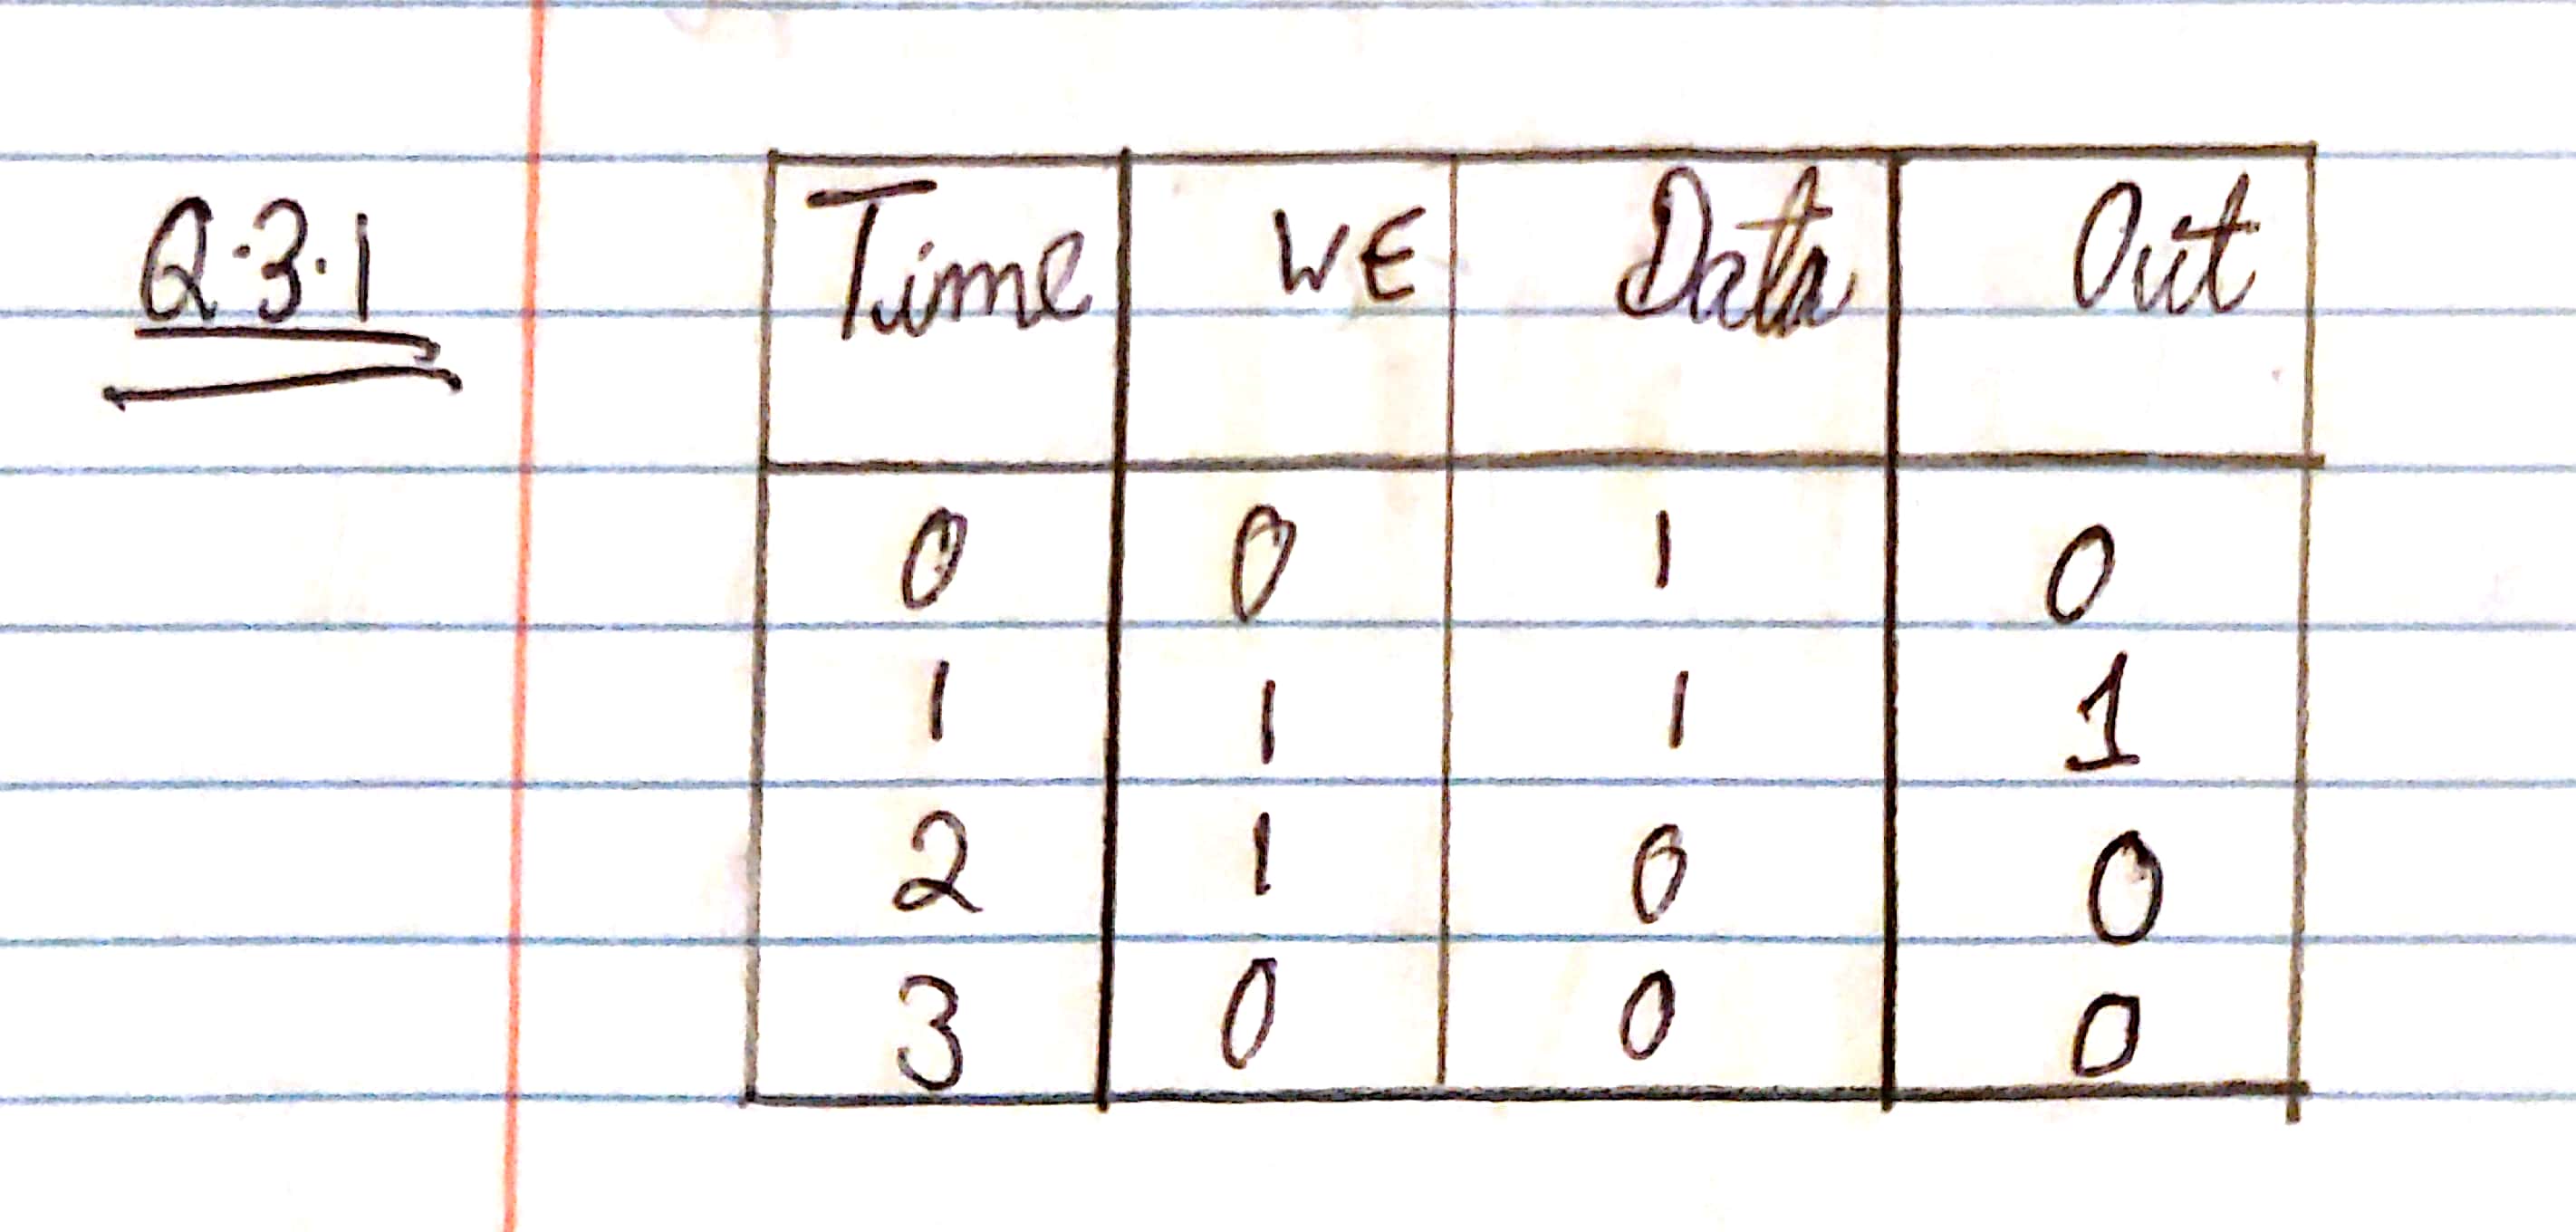 Q.3.1
Time WE Data Out
0 0 1 0
1 1 1 1
2 1 0 0
3 0 0 0